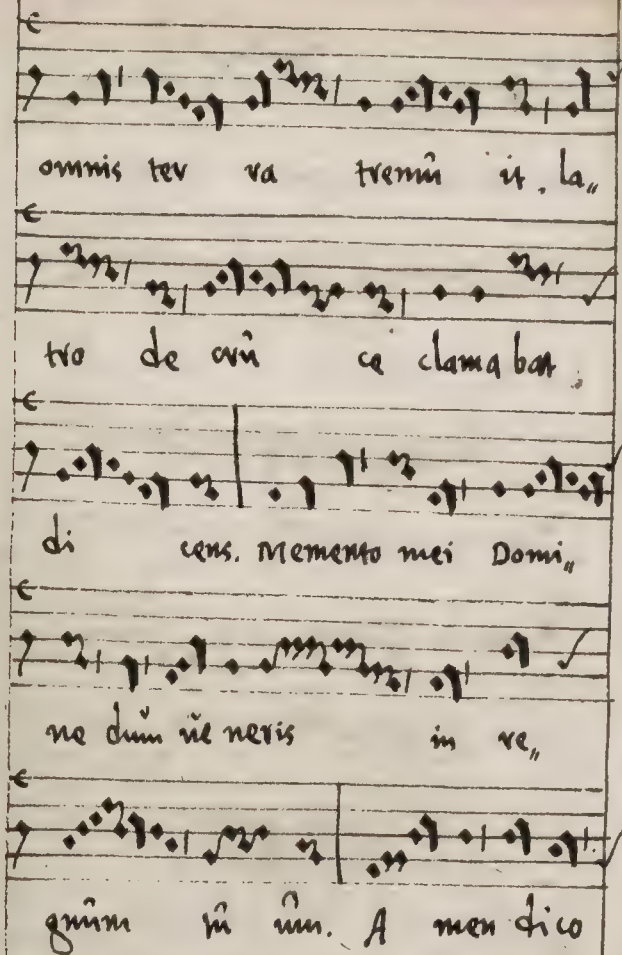 omnis ter ra tremŭ it. la„
tro de crŭ ce clama bat.
di cens. Memento mei Domi„
ne dŭm vĕ neris in re„
gnŭm tŭ ŭm. A men dico